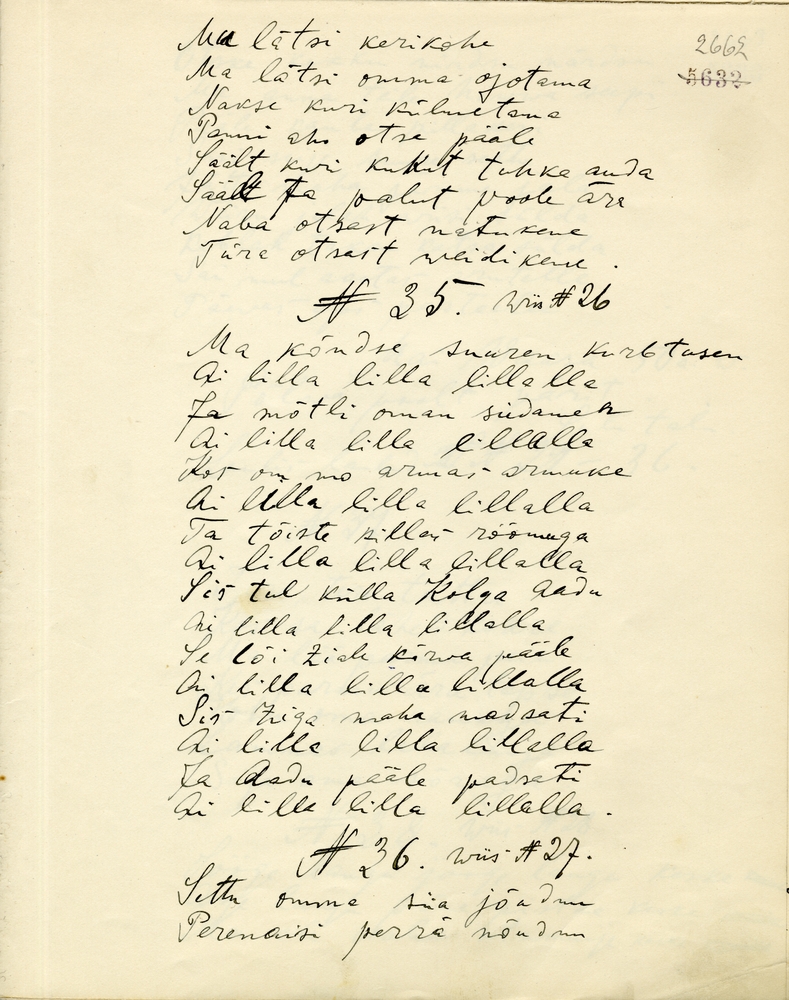 2662
5632
Ma lätsi kerikohe
Ma lätsi omma ojotama
Nakse kuri külmetama
Panni aho otse pääle
Säält kuri kukut tuhka anda
Säält ta palut poole ära
Naba otsast natukene
Türa otsast weidikene.
N 35. wiis N 26
Ma kõndse suuren kurbtusen
Ai lilla lilla lillalla
Ja mõtli oman südamen
Ai lilla lilla lillalla
Kos om mo armas armuke
Ai lilla lilla lillalla
Ta tõiste küllän rõõmuga
Ai lilla lilla lillalla
Sis tul külla Kolga Aadu
Ai lilla lilla lillalla
Se lõi kõrwa pääle
Ai lilla lilla lillalla
Sis maha madsati
Ai lilla lilla lillalla
Ja Aadu pääle padsati
Ai lilla lilla lillalla.
N 36. wiis N 27.
Settu omma siia jõudnu
Perenaisi perrä nõudnu